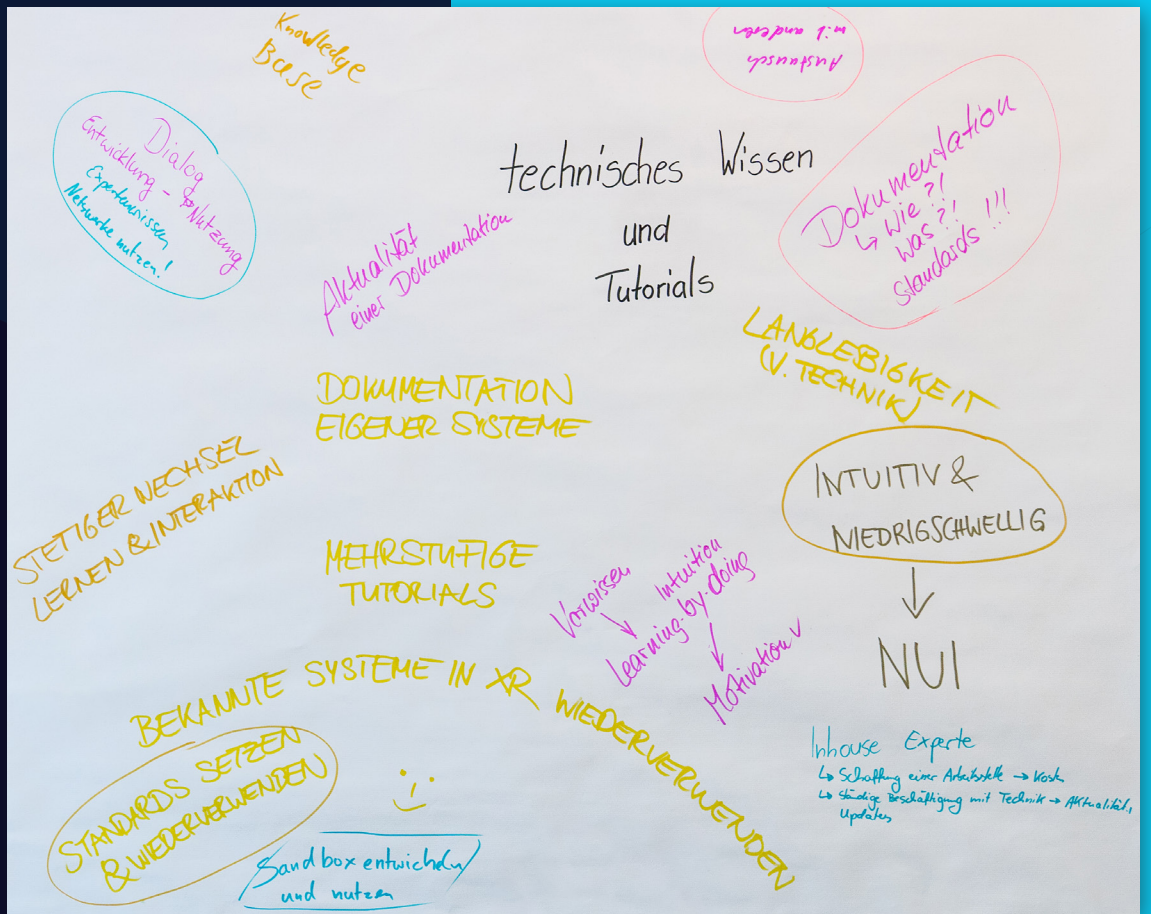 Knowledge
Base
Austausch
mit anderen
Dialog
Entwicklung - Nutzung
Expertenwissen
Netzwerke nutzen!
technisches Wissen
und
Tutorials
Dokumentation
↳ wie?!
was?!
Standards !!!
Aktualität
einer Dokumentation
LANGLEBIGKEIT
(V. TECHNIK)
DOKUMENTATION
EIGENER SYSTEME
INTUITIV &
NIEDRIGSCHWELLIG
↓
NUI
STETIGER WECHSEL
LERNEN & INTERAKTION
MEHRSTUFIGE
TUTORIALS
Vorwissen
Intuition
Learning-by-doing
Motivation ✓
BEKANNTE SYSTEME IN XR WIEDERVERWENDEN
STANDARDS SETZEN
& WIEDERVERWENDEN
Inhouse Experte
↳ Schaffung einer Arbeitsstelle → Kosten
↳ ständige Beschäftigung mit Technik → Aktualität,
Updates
Sandbox entwickeln
und nutzen